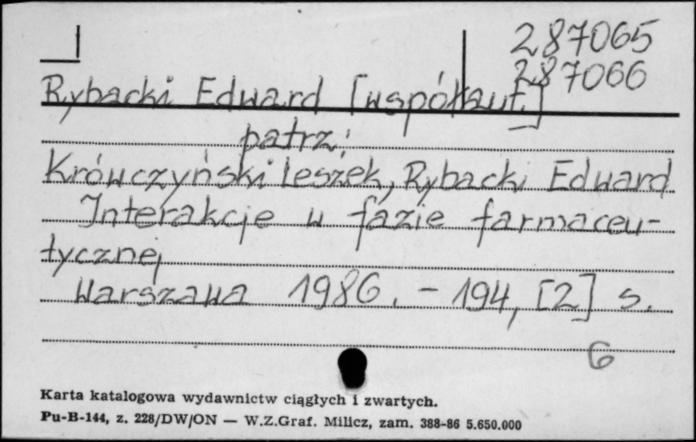 287065
287066
Rybacki Edward [współaut.]
patrz:
Krówczyński Leszek, Rybacki Edward
Interakcje w fazie farmaceu-
tycznej
Warszawa 1986. - 194, [2] s.
6
Karta katalogowa wydawnictw ciągłych i zwartych.
Pu-B-144, z. 228/DW/ON — W.Z.Graf. Milicz, zam. 388-86 5.650.000